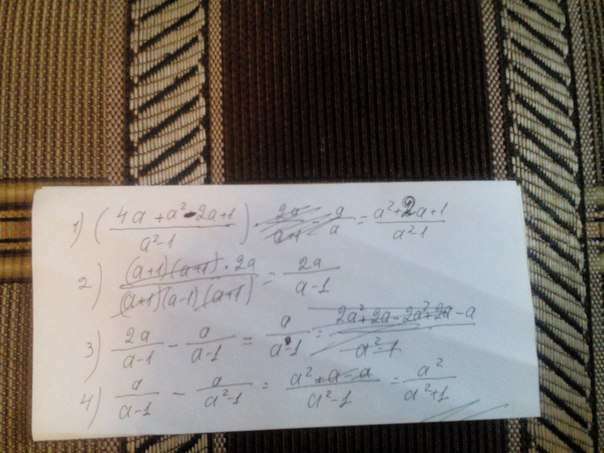 1) (4a + a² - 2a + 1 / a² - 1) · 2a / a+1 - a / a = a² + 2a + 1 / a² - 1
2) (a+1)(a+1) · 2a / (a+1)(a-1)(a+1) = 2a / a-1
3) 2a / a-1 - a / a-1 = a / a-1 = 2a² + 2a - 2a² + 2a - a / a² - 1
4) a / a-1 - a / a² - 1 = a² + a - a / a² - 1 = a² / a² + 1